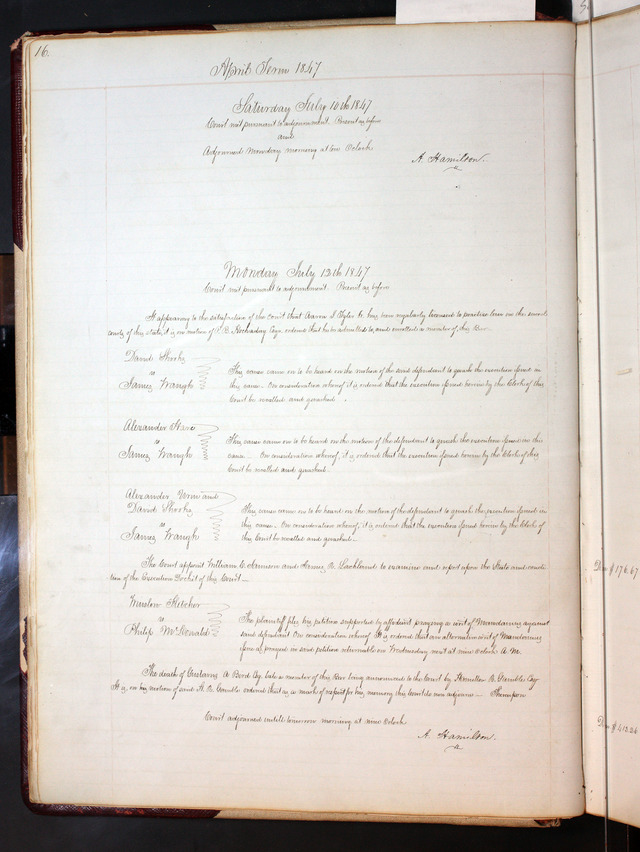 16.
April Term 1847
Saturday July 10th 1847
Court met pursuant to adjournment. Present as before
and
Adjourned Monday morning at ten Oclock
A. Hamilton.
Monday July 12th 1847
Court met pursuant to adjournment. Present as before
It appearing to the satisfaction of the court that Aaron S. has been regularly licensed to practice law in the several
courts of this state, it is on motion of B. Esqr. ordered that he be admitted to and enrolled a member of this Bar.
David
vs
James Waugh
This cause came on to be heard on the motion of the said defendant to quash the execution issued in
this cause. On consideration whereof, it is ordered that the execution issued herein by the Clerk of this
Court be recalled and quashed.
Alexander
vs
James Waugh
This cause came on to be heard on the motion of the defendant to quash the execution issued in this
cause. On consideration whereof, it is ordered that the execution issued herein by the Clerk of this
Court be recalled and quashed.
Alexander and
David
vs
James Waugh
This cause came on to be heard on the motion of the defendant to quash the execution issued in
this cause. On consideration whereof, it is ordered that the execution issued herein by the Clerk of
this Court be recalled and quashed.
The Court appoint William C. and James R. Lackland to examine and report upon the State and condi-
tion of the Execution Docket of this Court
Winslow
vs
Philip McDonald
The plaintiff files his petition supported by affidavit praying a writ of Mandamus against
said defendant On consideration whereof It is ordered that an alternative writ of Mandamus
issue as prayed in said petition returnable on Wednesday next at nine Oclock A. M.
The death of A Esq. late a member of this Bar being announced to the Court by Hamilton R. Gamble Esqr
It is, on his motion of said H. R. Gamble ordered that as a mark of respect for his memory this Court do now adjourn
Court adjourned until tomorrow morning at nine Oclock
A. Hamilton.
$176.67